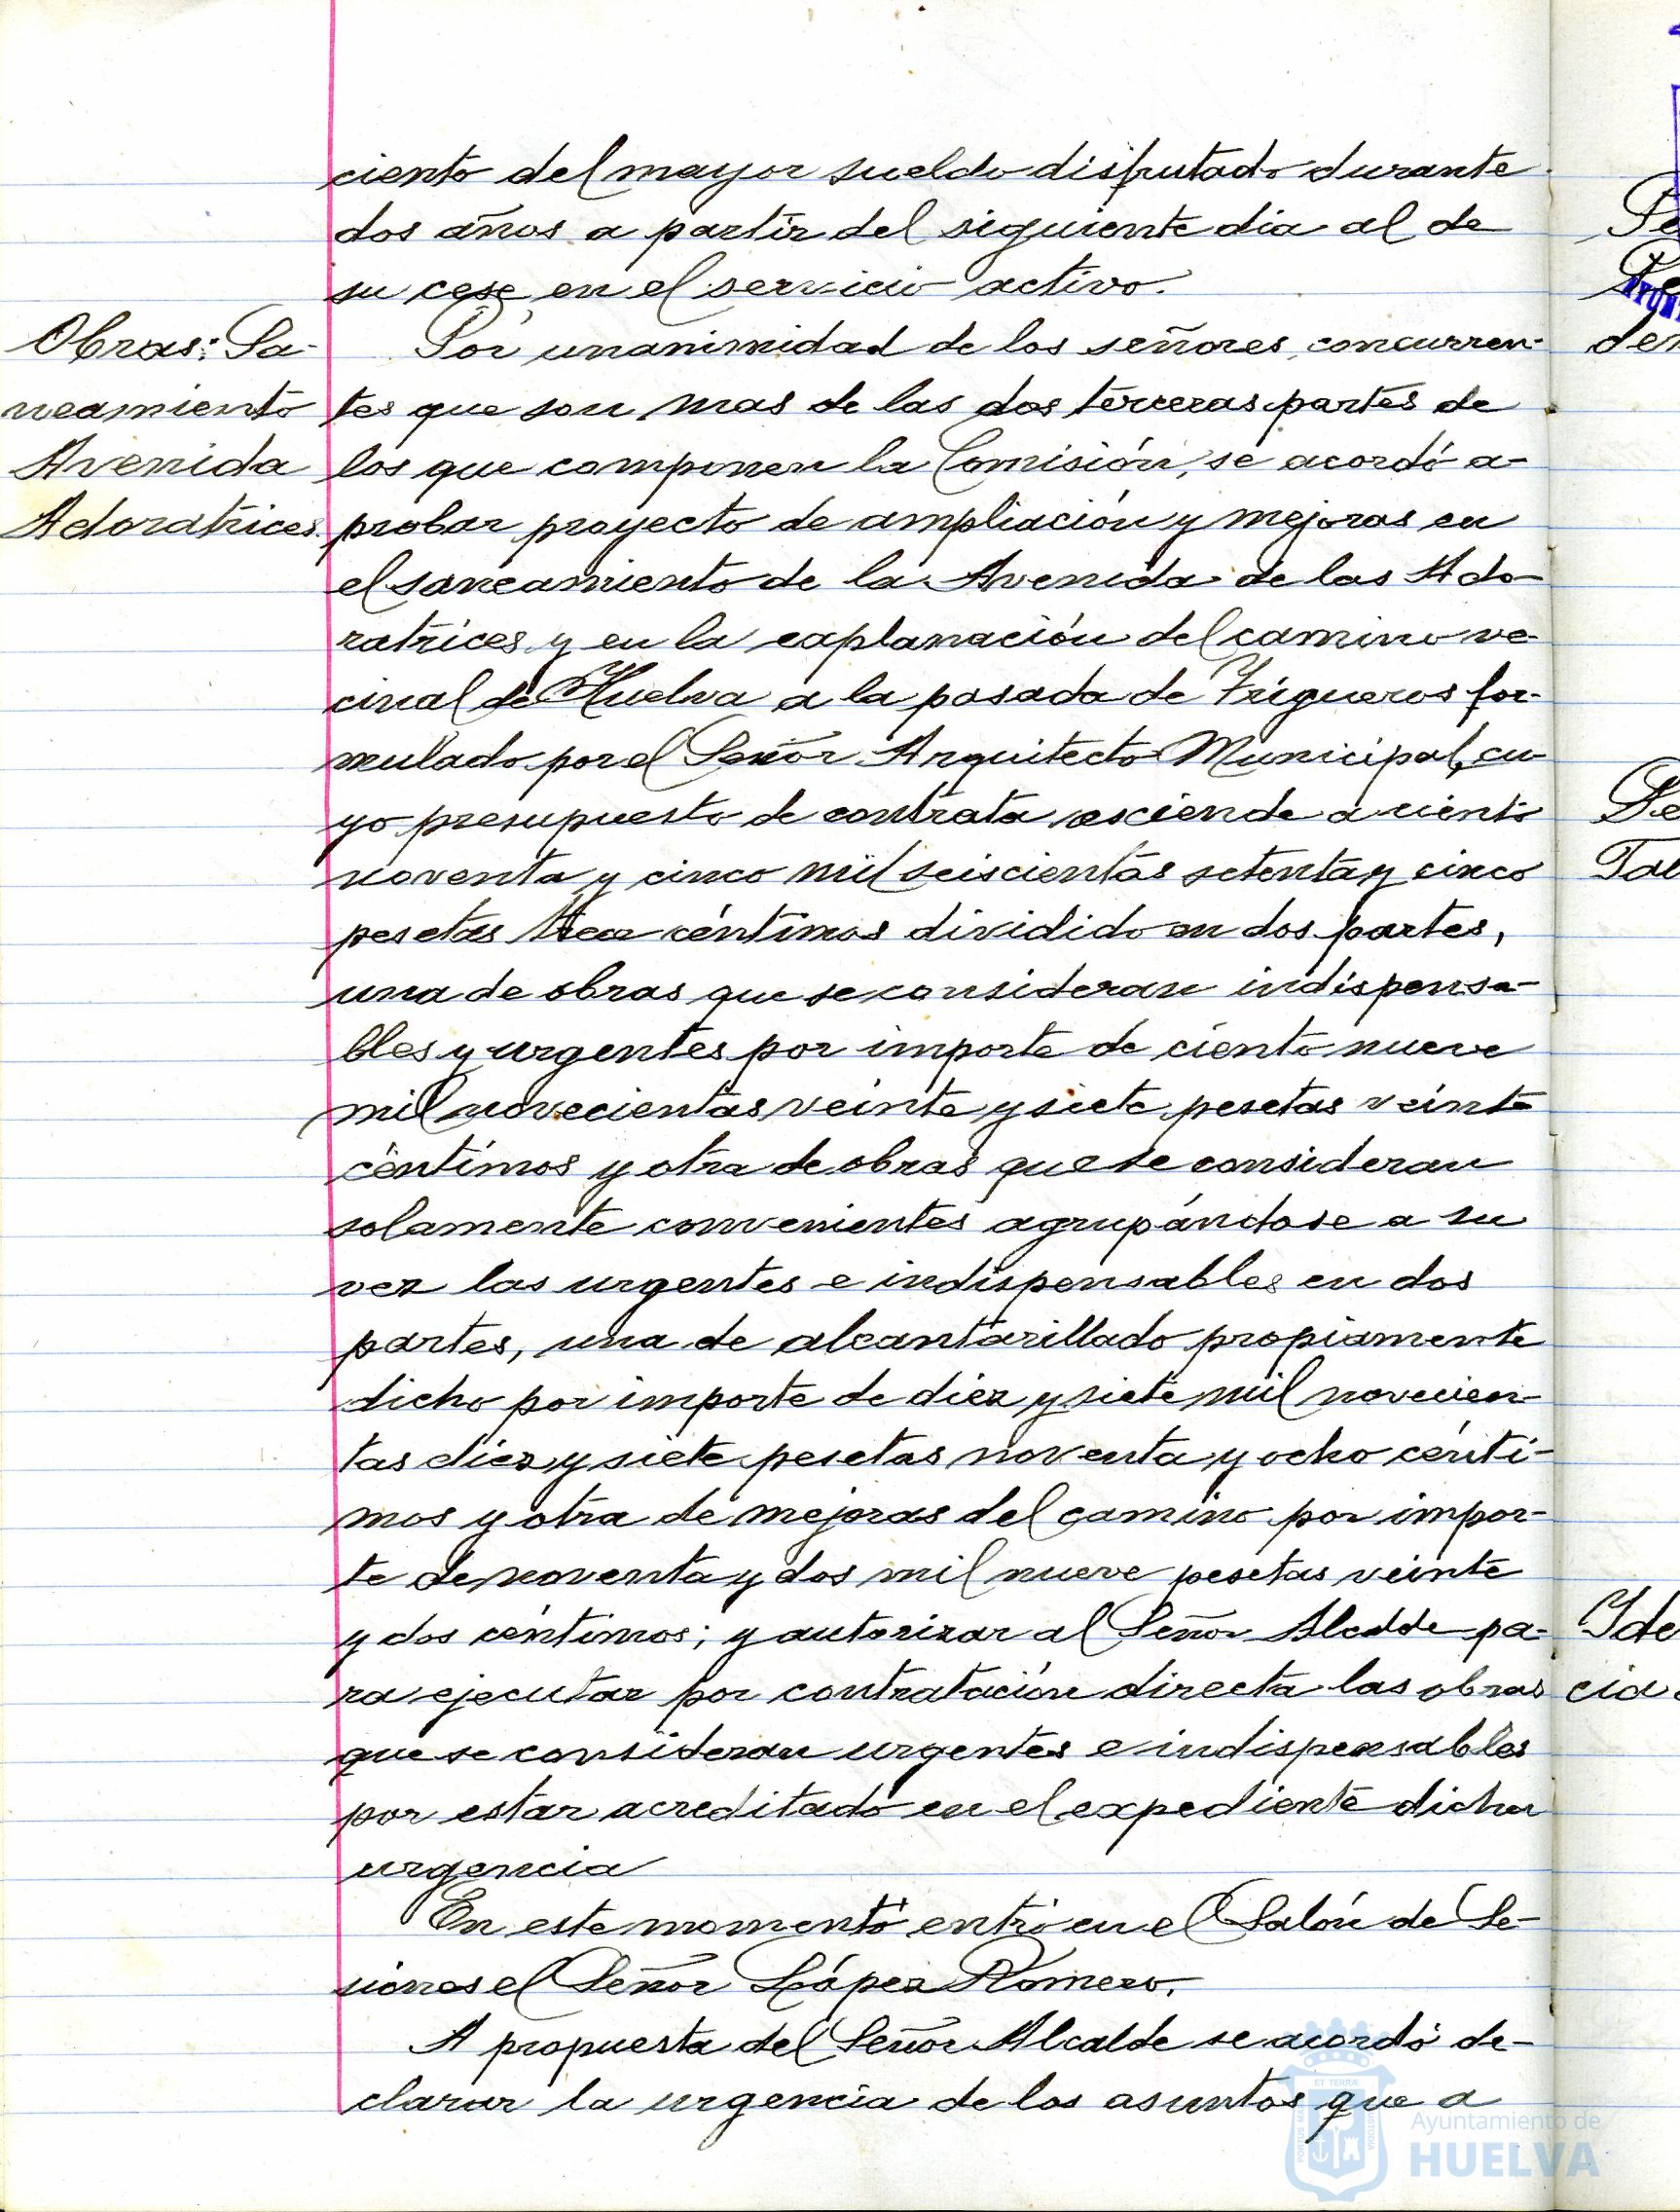 ciento del mayor sueldo disfrutado durante
dos años a partir del siguiente dia al de
su cese en el servicio activo.
Obras: Sa-
neamiento
Avenida
Adoratrices.
Por unanimidad de los señores concurren-
tes que son mas de las dos terceras partes de
los que componen la Comisión, se acordó a-
probar proyecto de ampliación y mejoras en
el saneamiento de la Avenida de las Ado-
ratrices y en la explanación del camino ve-
cinal de Huelva a la posada de Trigueros for-
mulado por el Señor Arquitecto Municipal, cu-
yo presupuesto de contrata asciende a ciento
noventa y cinco mil seiscientas setenta y cinco
pesetas tres céntimos dividido en dos partes,
una de obras que se consideran indispensa-
bles y urgentes por importe de ciento nueve
mil novecientas veinte y siete pesetas veinte
céntimos y otra de obras que se consideran
solamente convenientes agrupándose a su
vez las urgentes e indispensables en dos
partes, una de alcantarillado propiamente
dicho por importe de diez y siete mil novecien-
tas diez y siete pesetas noventa y ocho cénti-
mos y otra de mejoras del camino por impor-
te de noventa y dos mil nueve pesetas veinte
y dos céntimos; y autorizar al Señor Alcalde pa-
ra ejecutar por contratación directa las obras
que se consideran urgentes e indispensables
por estar acreditado en el expediente dicha
urgencia
En este momento entró en el Salón de Se-
siones el Señor López Romero.
A propuesta del Señor Alcalde se acordó de-
clarar la urgencia de los asuntos que a
Ayuntamiento de
HUELVA